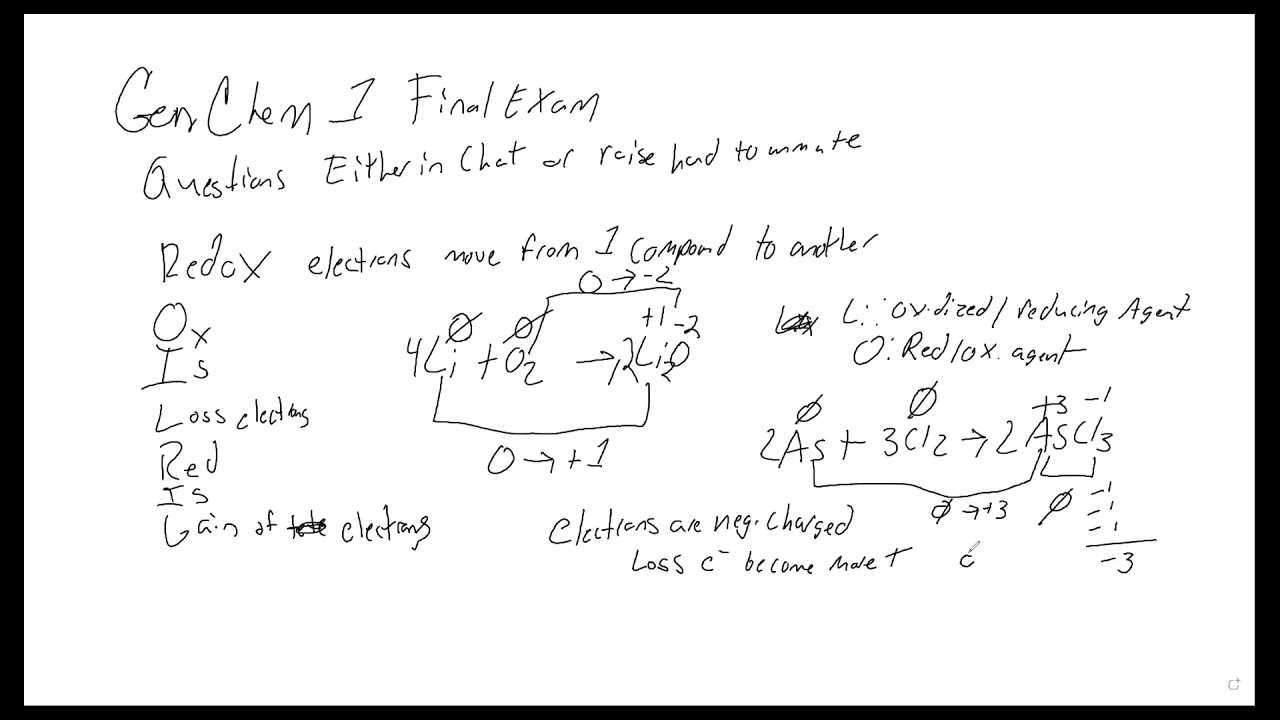 Gen Chem 1 Final Exam
Questions Either in Chat or raise hand to unmute
Redox electrons move from 1 compound to another
0 → -2
Ox
Is
Loss electrons
Red
Is
Gain of electrons
Ø Ø +1 -2
4Li + O2 → 2Li2O
0 → +1
Li: oxidized/reducing Agent
O: Red/ox. agent
Ø Ø +3 -1
2As + 3Cl2 → 2AsCl3
Ø → +3 Ø
-1
-1
-1
-3
electrons are neg. charged
Loss e- become more +